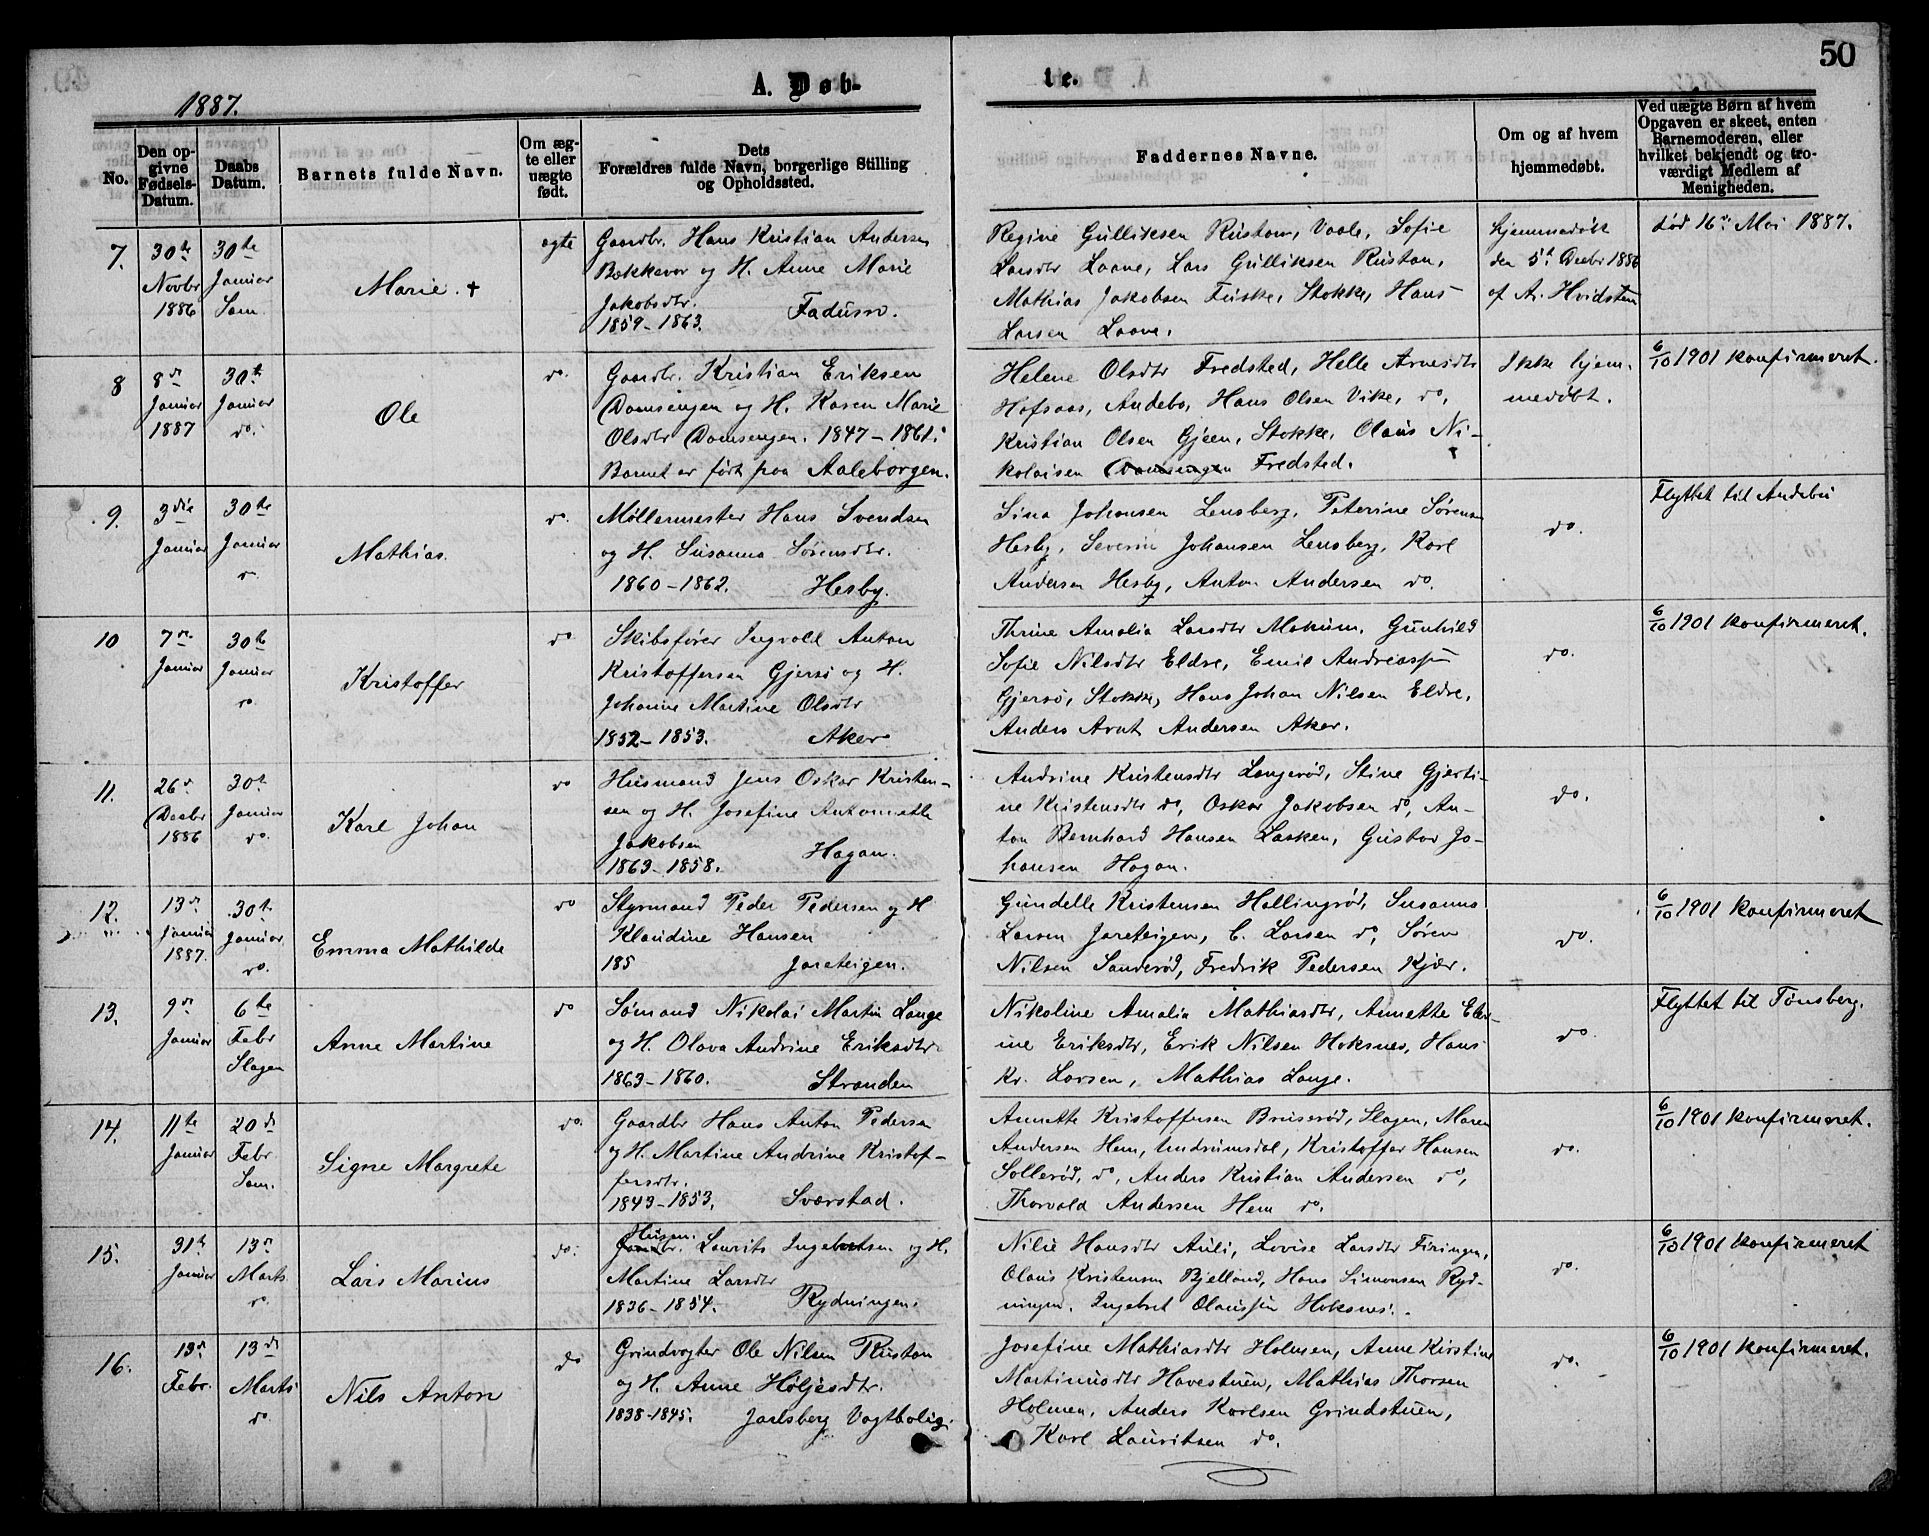 50
A. Døb-
te.
1887.
No.
Den opgivne Fødsels-Datum.
Daabs Datum.
Barnets fulde Navn.
Om ægte eller uægte født.
Dets
Forældres fulde Navn, borgerlige Stilling
og Opholdssted.
Faddernes Navne.
Om og af hvem
hjemmedøbt.
Ved uægte Børn af hvem
Opgaven er skeet, enten
Barnemoderen, eller
hvilket bekjendt og tro-
værdigt Medlem af
Menigheden.
7.
30te Novbr 1886
30te Januar Sem.
Marie. +
ægte
Gaardbr. Hans Kristian Andersen
Bekkevar og H. Anne Marie
Jakobsdtr.
1859-1863. Fadum.
Regine Gulliksen Rustan, Vaale, Sofie
Larsdtr Laane, Lars Gulliksen Rustan,
Mathias Jakobsen Fuske, Stokke, Hans
Larsen Laane.
Hjemmedøbt
den 5te Decbr 1886
af A. Hvidsten
død 16de Mai 1887.
8
8de Januar 1887
30te Januar do.
Ole
do.
Gaardbr. Kristian Eriksen
Damsengen og H. Karen Marie
Olsdtr Damsengen. 1847-1861.
Barnet er født paa Aaleborgen.
Helene Olsdtr Fredsted, Helle Arnesdtr
Hofsaas, Andebo, Hans Olsen Vike, do,
Kristian Olsen Gjeen, Stokke, Olaus Ni-
kolaisen Damsengen Fredsted.
Ikke hjem-
medøbt.
6/10 1901 konfirmeret.
9.
3die Januar
30te Januar do.
Mathias.
do.
Møllermester Hans Svendsen
og H. Susanna Sørensdtr.
1860-1862. Hesby.
Sina Johansen Lensberg, Peterine Sørensen
Hesby, Severin Johansen Lensberg, Karl
Andersen Hesby, Anton Andersen do.
do.
Flyttet til Andebu
10
7de Januar
30te Januar do.
Kristoffer
do
Skibsfører Ingvald Anton
Kristoffersen Gjersø og H.
Johanne Martine Olsdtr
1852-1853. Aker
Thrine Amalia Larsdtr Makum, Gunhild
Sofie Nilsdtr Eldre, Emil Andreassen
Gjersø, Stokke, Hans Johan Nilsen Eldre,
Anders Arnt Andersen Aker.
do.
6/10 1901 konfirmeret.
11.
26de Decbr 1886
30te Januar do.
Karl Johan
do
Husmand Jens Oskar Kristen-
sen og H. Josefine Antonette
Jakobsen
1863-1858. Hagan.
Andrine Kristensdtr Langerød, Stine Gjerti-
ne Kristensdtr do, Oskar Jakobsen do, An-
ton Bernhard Hansen Lasken, Gustav Jo-
hansen Hagan.
do.
12.
13de Januar 1887.
30te Januar do.
Emma Mathilde
do
Styrmand Peder Pedersen og H
Klaudine Hansen
185 Jareteigen.
Gundelle Kristensen Hallingrød, Susanna
Larsen Jareteigen, C. Larsen do, Søren
Nilsen Sanderød, Fredrik Pedersen Kjær.
do.
6/10 1901 konfirmeret
13.
9de Januar
6te Febr Slagen
Anne Martine
do
Sømand Nikolai Martin Lange
og H. Olava Andrine Eriksdtr.
1863-1860. Stranden
Nikoline Amalia Mathiasdtr, Annette Eber-
ine Eriksdtr, Erik Nilsen Hoksnes, Hans
Kr. Larsen, Mathias Lange.
do
Flyttet til Tønsberg.
14.
11te Januar
20de Febr Sem.
Signe Margrete
do.
Gaardbr Hans Anton Pedersen
og H. Martine Andrine Kristof-
fersdtr.
1843-1853. Sværstad.
Annette Kristoffersen Bruserød, Slagen, Maren
Andersen Hem, Undrumsdal, Kristoffer Hansen
Sollerød, do, Anders Kristian Andersen do,
Thorvald Andersen Hem do.
do.
6/10 1901 konfirmeret.
15.
31te Januar
13de Marts do.
Lars Marius
do.
Husm.
Gaardbr. Laurits Ingebretsen og H.
Martine Larsdtr
1836-1854. Rydningen.
Nilie Hansdtr Auli, Lovise Larsdtr Firingen,
Olaus Kristensen Bjelland, Hans Simonsen Ryd-
ningen, Ingebret Olaussen Hoksnes.
do.
6/10 1901 konfirmeret
16.
13de Febr.
13de Marts do.
Nils Anton
do
Grindvogter Ole Nilsen Rustan
og H. Anne Høljesdtr.
1838-1845. Jarlsberg Vogtbolig.
Josefine Mathiasdtr Holmen, Anne Kirstine
Martinusdtr Havestuen, Mathias Thorsen
Holmen, Anders Karlsen Grindstuen,
Karl Lauritsen do.
do.
6/10 1901 konfirmeret.